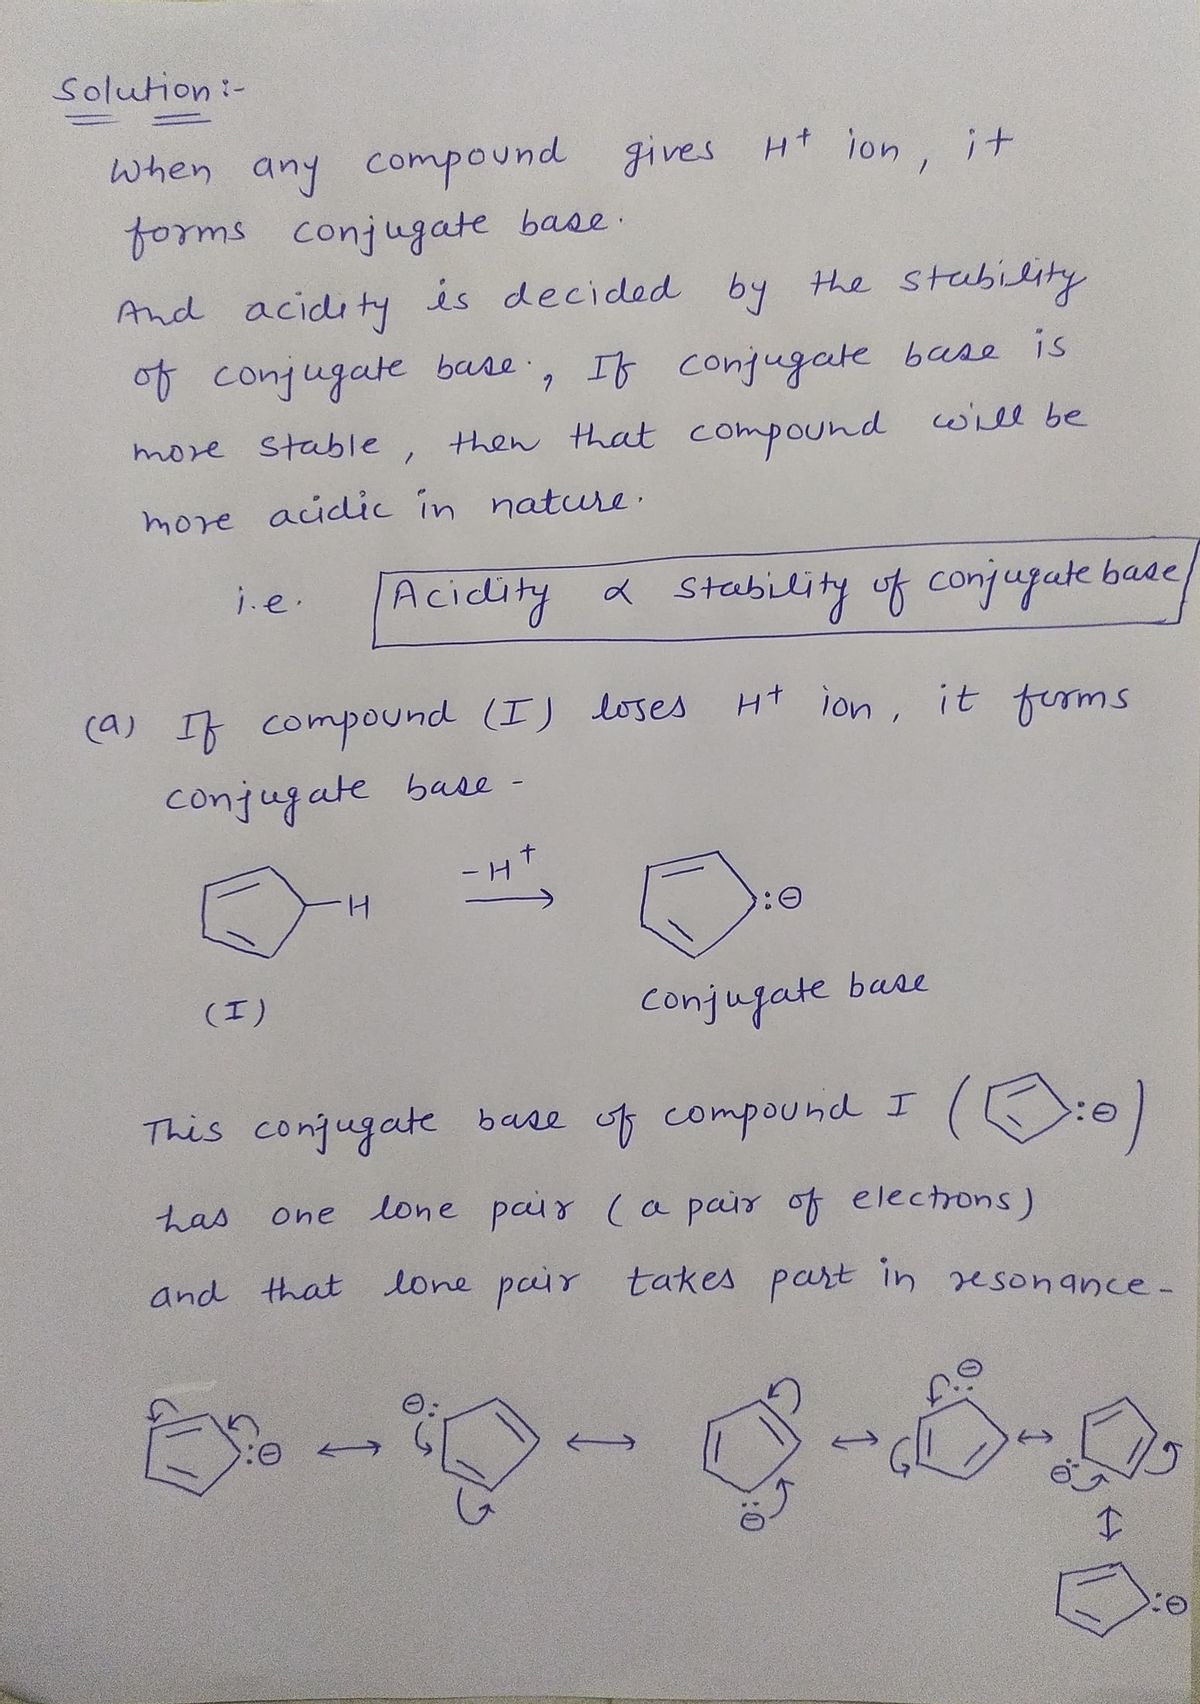 Solution :-
When any compound gives H⁺ ion, it
forms conjugate base.
And acidity is decided by the stability
of conjugate base., If conjugate base is
more stable, then that compound will be
more acidic in nature.
i.e. Acidity α Stability of conjugate base
(a) If compound (I) loses H⁺ ion, it forms
conjugate base -
-H⁺
H :⊖
(I)
conjugate base
This conjugate base of compound I ( :⊖)
has one lone pair (a pair of electrons)
and that lone pair takes part in resonance -
:⊖ ↔ ⊖: ↔ ⊖ ↔ ⊖ ↔ ⊖
:⊖